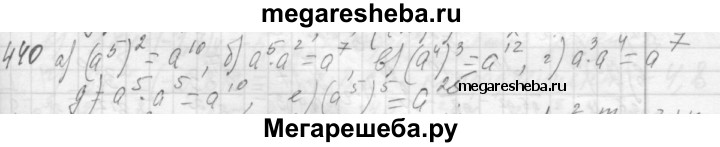 megaresheba.ru
440 а) (a⁵)² = a¹⁰, б) a⁵·a² = a⁷ в) (a⁴)³ = a¹², г) a³·a⁴ = a⁷
д) a⁵·a⁵ = a¹⁰, е) (a⁵)⁵ = a²⁵
megaresheba.ru
Мегарешеба.ру